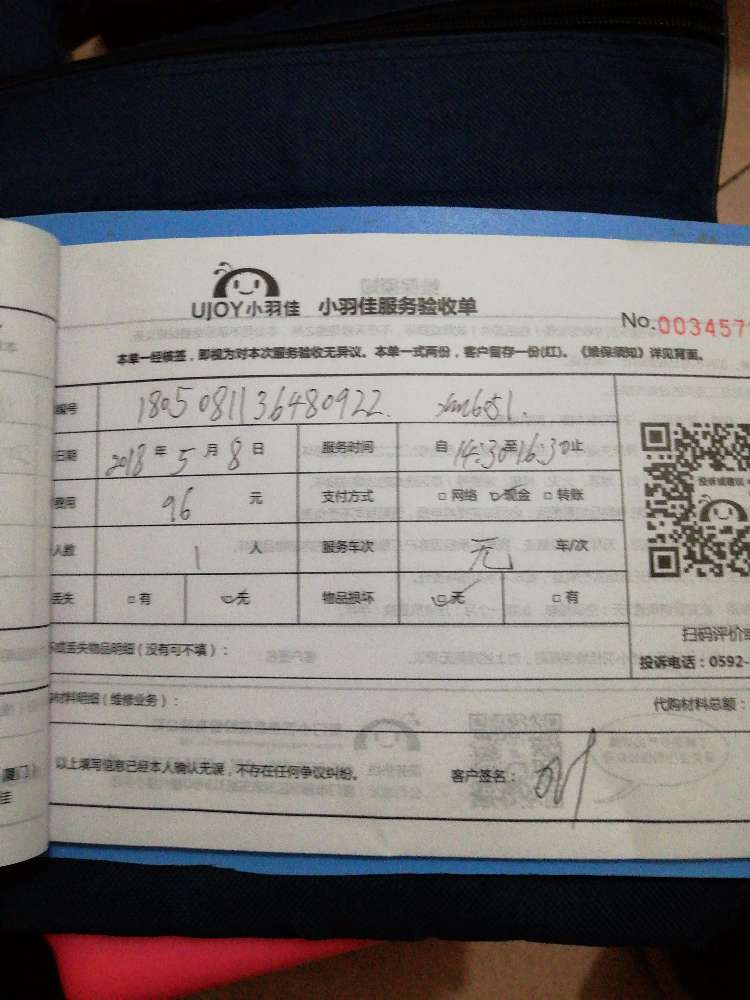 UJOY小羽佳 小羽佳服务验收单
No.003457
本单一经核签,即视为对本次服务验收无异议。本单一式两份,客户留存一份(红)。《维保须知》详见背面。
编号 1805081136480922.
日期 2018 年 5 月 8 日 服务时间 自 14:30 至 16:30 止
费用 96 元 支付方式 □ 网络 ☑ 现金 □ 转账
人数 1 人 服务车次 无 车/次
丢失 □ 有 ☑ 无 物品损坏 ☑ 无 □ 有
投诉或建议
扫码评价
坏或丢失物品明细(没有可不填):
投诉电话:0592-
材料明细(维修业务):
代购材料总额:
以上填写信息已经本人确认无误,不存在任何争议纠纷。 客户签名:
厦门)
佳